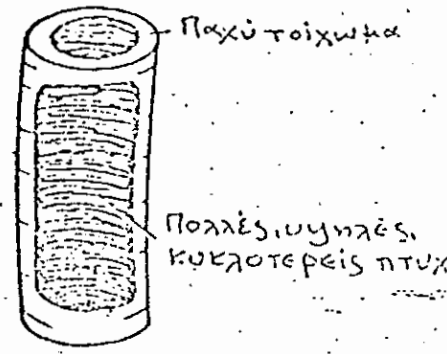 Παχύ τοίχωμα
Πολλές, υψηλές,
κυκλοτερείς πτυχ